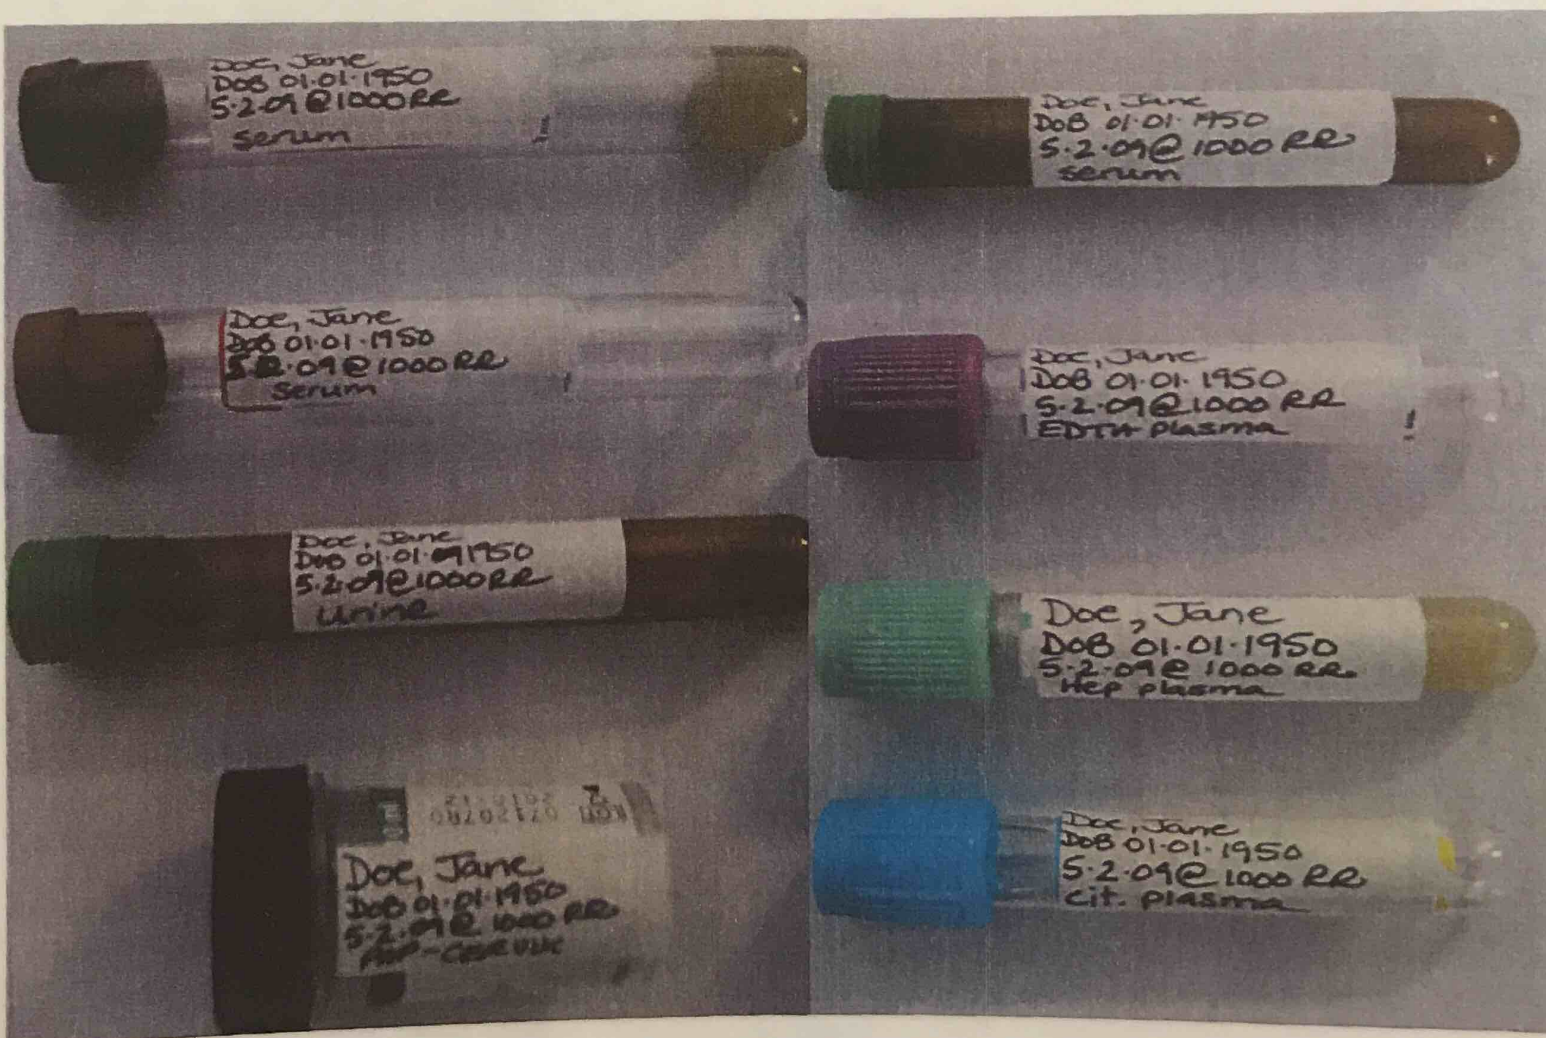 Doe, Jane
DOB 01.01.1950
5.2.09@1000RR
serum
Doe, Jane
DOB 01.01.1950
5.2.09@1000RR
serum
Doe, Jane
DOB 01.01.091950
5.2.09@1000RR
Urine
Doe, Jane
DOB 01.01.1950
5.2.09@1000 RR
PAP-CERVIX
Doe, Jane
DOB 01.01.1950
5.2.09@1000 RR
serum
Doe, Jane
DOB 01.01.1950
5.2.09@1000 RR
EDTA plasma
Doe, Jane
DOB 01.01.1950
5.2.09@1000 RR
Hep plasma
Doe, Jane
DOB 01.01.1950
5.2.09@1000 RR
Cit. plasma